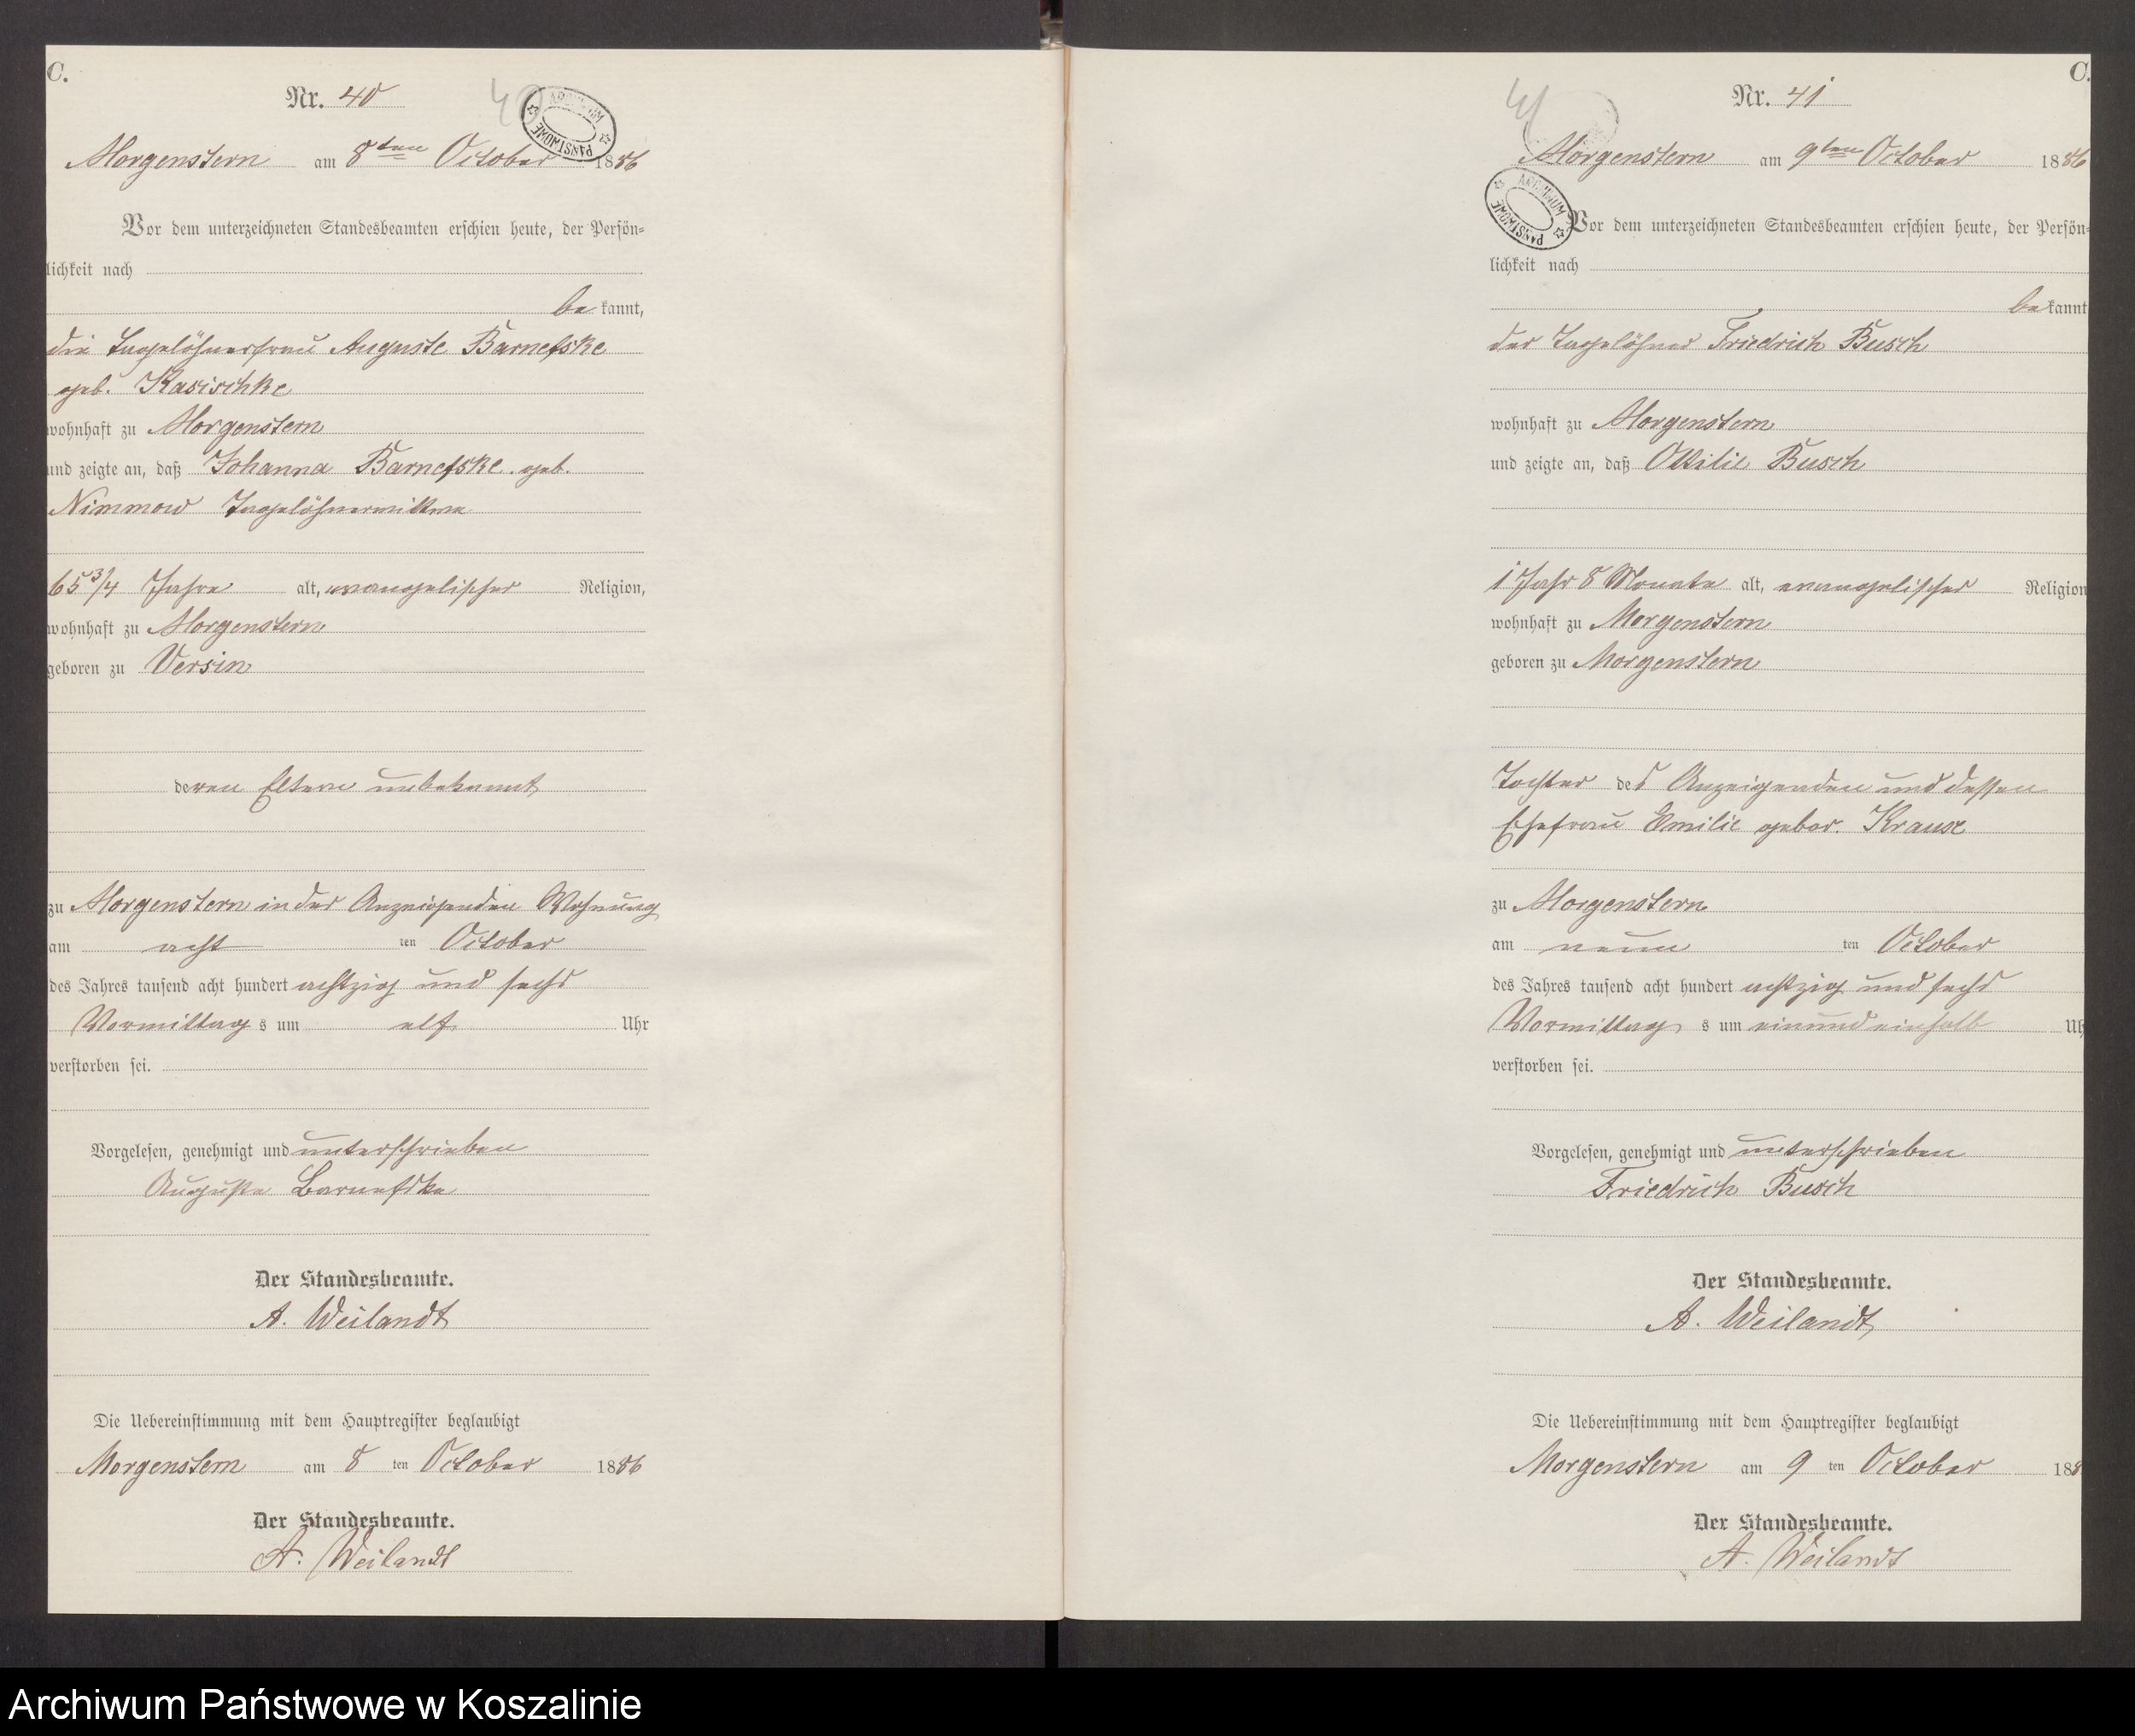 C.
Nr. 40
40
ARCHIWUM PAŃSTWOWE
Morgenstern am 8ten October 1886
Vor dem unterzeichneten Standesbeamten erschien heute, der Persön=
lichkeit nach
bekannt,
die Tagelöhnerfrau Auguste Barnefske
geb. Kasischke
wohnhaft zu Morgenstern
und zeigte an, daß Johanna Barnefske geb.
Nimmow Tagelöhnerwittwe
65 3/4 Jahre alt, evangelischer Religion,
wohnhaft zu Morgenstern
geboren zu Versin
deren Eltern unbekannt
zu Morgenstern in der Anzeigenden Wohnung
am acht ten October
des Jahres tausend acht hundert achtzig und sechs
Vormittags um elf Uhr
verstorben sei.
Vorgelesen, genehmigt und unterschrieben
Auguste Barnefske
Der Standesbeamte.
A. Weilandt
Die Uebereinstimmung mit dem Hauptregister beglaubigt
Morgenstern am 8 ten October 1886
Der Standesbeamte.
A. Weilandt
C.
Nr. 41
41
Morgenstern am 9ten October 1886
ARCHIWUM PAŃSTWOWE
Vor dem unterzeichneten Standesbeamten erschien heute, der Persön=
lichkeit nach
bekannt
der Tagelöhner Friedrich Busch
wohnhaft zu Morgenstern
und zeigte an, daß Ottilie Busch
1 Jahr 8 Monate alt, evangelischer Religion
wohnhaft zu Morgenstern
geboren zu Morgenstern
Tochter des Anzeigenden und dessen
Ehefrau Emilie gebor. Krause
zu Morgenstern
am neun ten October
des Jahres tausend acht hundert achtzig und sechs
Vormittags um einundeinhalb Uh
verstorben sei.
Vorgelesen, genehmigt und unterschrieben
Friedrich Busch
Der Standesbeamte.
A. Weilandt
Die Uebereinstimmung mit dem Hauptregister beglaubigt
Morgenstern am 9 ten October 188
Der Standesbeamte.
A. Weilandt
Archiwum Państwowe w Koszalinie